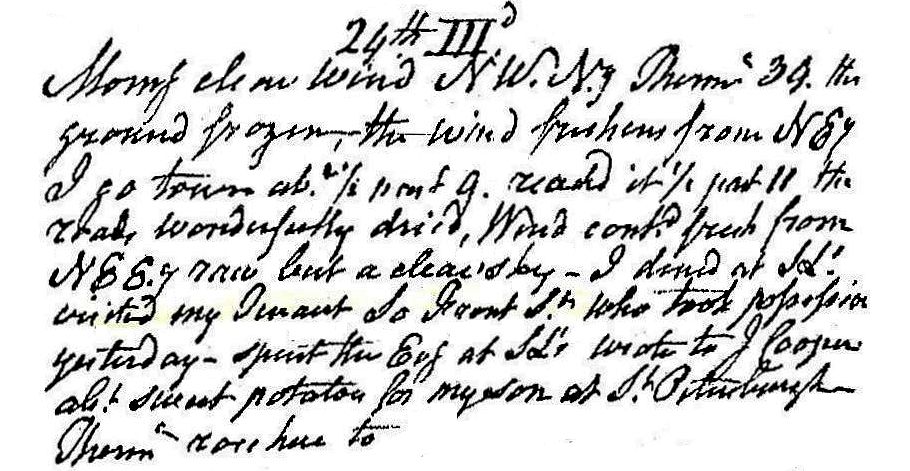 24th III.d
Morng clear wind N.W.Ny Therm.r 39. the
ground frozen, the wind freshens from NEy
I go town ab.t 1/2 past 9. reachd it 1/2 past 11 the
roads wonderfully dried, Wind contd fresh from
NEEy raw but a clear sky - I dined at SL's
visited my Tenant So Front St. who took possession
yesterday - spent the Evg at SL's wrote to J Cooper
abt sweet potatoes for my son at St Petersburgh
Thermr rose here to